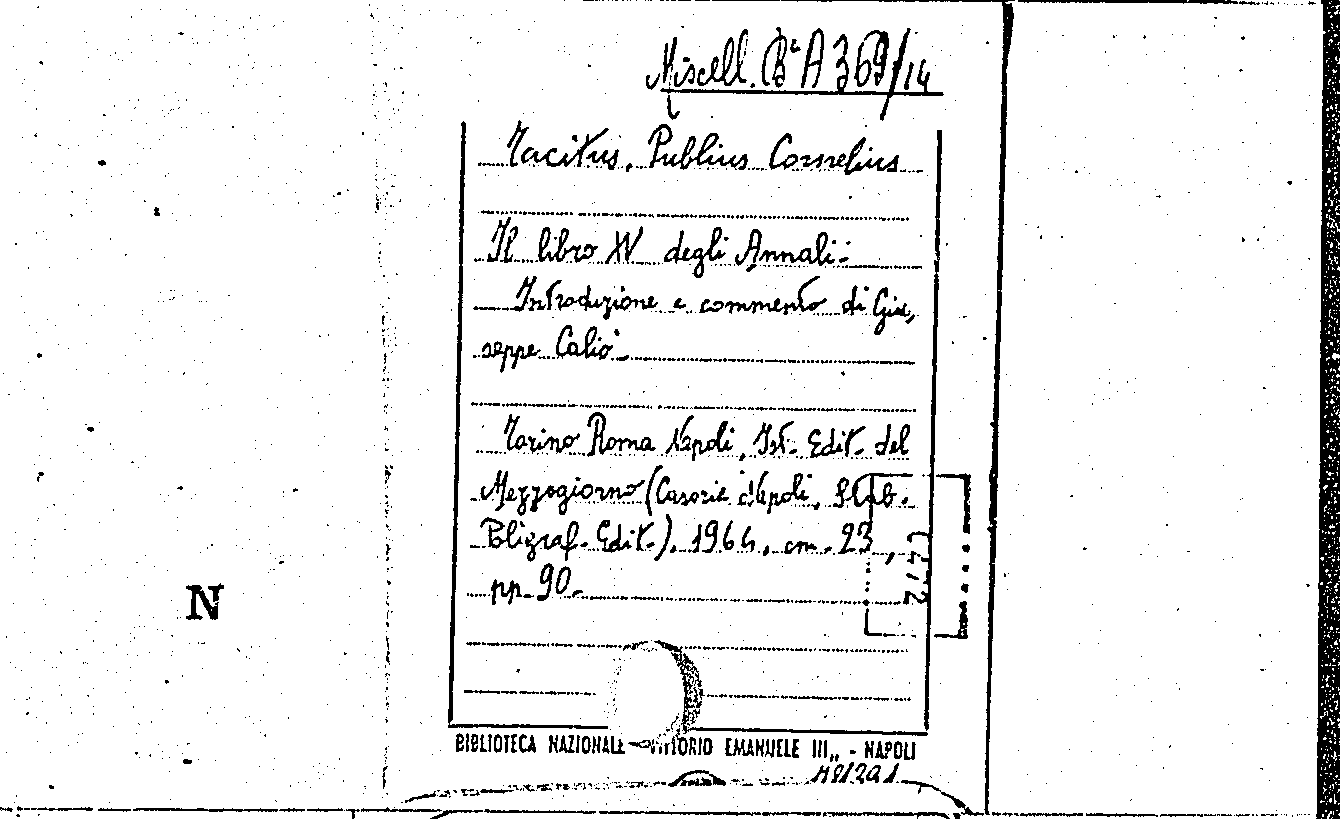 Miscell. Bª A 369/14
Tacitus, Publius Cornelius
Il libro XV degli Annali.
Introduzione e commento di Giu,
seppe Caliò.
Torino Roma Napoli, Ist. Edit. del
Mezzogiorno (Casoria Napoli, Stab.
Poligraf. Edit.), 1964, cm. 23,
pp. 90.
N
BIBLIOTECA NAZIONALE VITTORIO EMANUELE III„ - NAPOLI